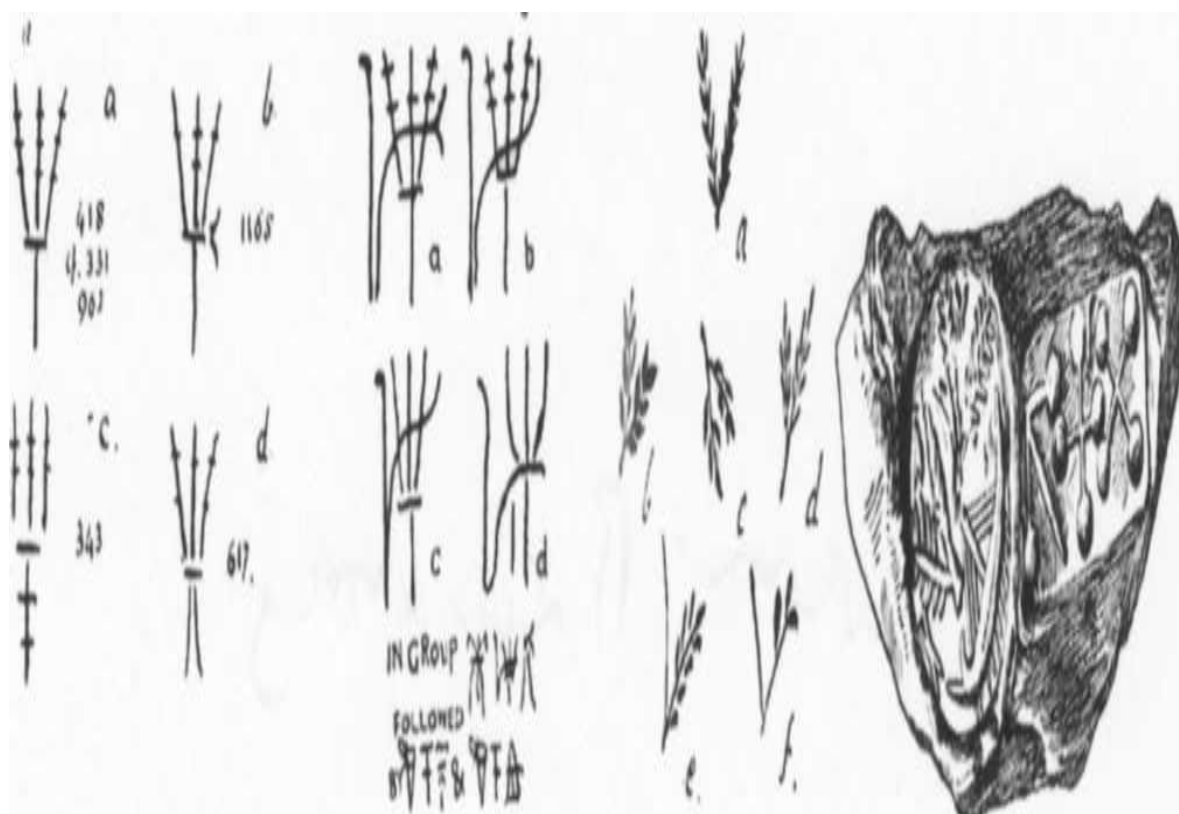 a
418
cf. 331
907
b
1168
c.
343
d
617.
a
b
c
d
IN GROUP
FOLLOWED
&
a
b
c
d
e.
f.